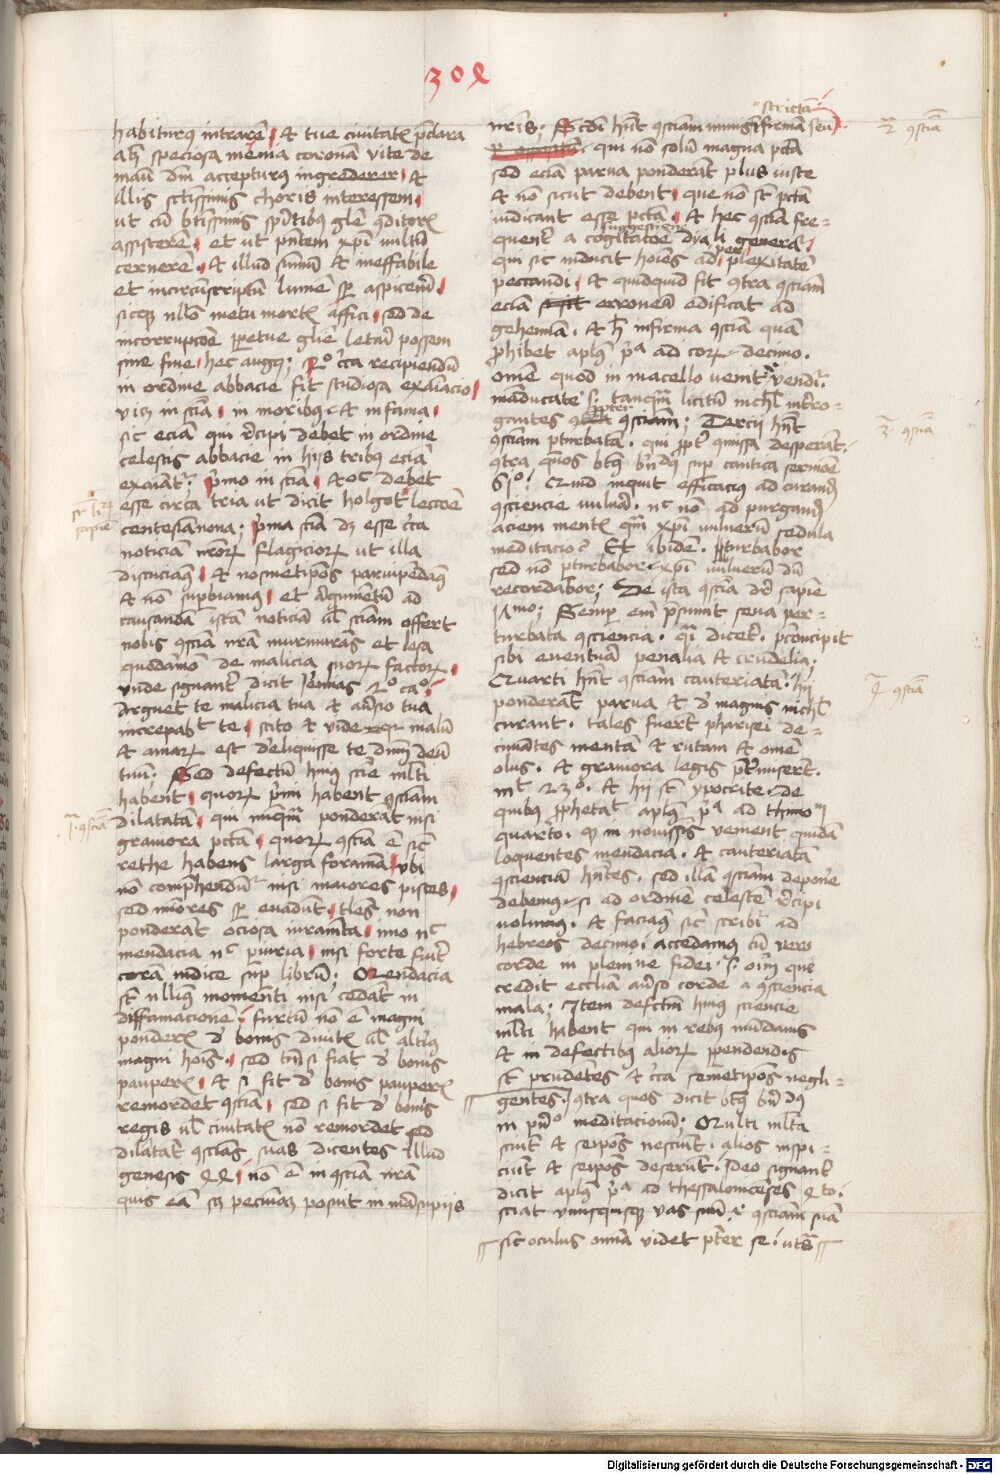 308
habiturus intrare et tue civitatis preclara
atque speciosa menia coronam vite de
manu domini accepturus ingrederer et
illis sctissimis choris interessem
ut cum btissimis spiritibus glorie conditoris
assisterem et ut pntem xpi vultum
cernerem et illud summum et ineffabile
et incircumscriptum lumen semper aspicerem
sicque nullo metu mortis affici sed de
incorrupcione perpetue glorie letari possem
sine fine hec augus; circa recipiendum
in ordine abbacie fit studiosa exaiacio
in scia in moribus et in fama
sic eciam qui recipi debet in ordine
celestis abbacie in hiis tribus eciam
exaiatur primo in scia et hoc debet
esse circa tria ut dicit holgot leccione
centesima nona; prima scia debet esse circa
noticiam nostrorum flagiciorum ut illa
discuciamus et nosmetipsos parvipendamus
et non superbiamus et argumentum ad
causandam istam noticiam vel scienciam offert
nobis consciencia nostra murmurans et lesa
quodammodo de malicia suorum factorum
unde signanter dicit Jeremias 2o cao
Arguet te malicia tua et aversio tua
increpabit te scito et vide quia malum
et amarum est dereliquisse te dominum deum
tuum. Sed defectum huius scie multi
habent quorum primi habent conscienciam
dilatatam qui nunquam ponderat nisi
graviora peccata quorum consciencia est sicut
rethe habens larga foramina ubi
non comprehenduntur nisi maiores pisces
sed minores semper evadunt tales non
ponderant ociosa iuramenta immo nec
mendacia nec periuria nisi forte fuerit
coram iudice super librum. Mendacia
sunt nullius momenti nisi cedant in
diffamacionem furtum non est magni
ponderis de bonis divitis vel alterius
magni hominis sed tamen si fiat de bonis
pauperis et si fit de bonis pauperis
remordet consciencia sed si fit de bonis
regis vel civitatis non remordet sed
dilatant consciencias suas dicentes illud
genesis 44 non est in consciencia nostra
quis eam scilicet pecuniam posuit in marsupiis
strictam
nostris. Secundi habent conscienciam nimis infirmam seu
qui non solum magna peccata
sed eciam parva ponderant plus iuste
et non sicut debent que non sunt peccata
iudicant esse peccata et hec consciencia fre=
suggestione
quenter a cogitacione dyaboli generatur
qui sic inducit homines ad perplexitatem
peccandi et quidquid fit contra conscienciam
eciam erroneam edificat ad
gehennam. et hec infirma consciencia quam
prohibet apostolus prima ad cor decimo.
omne quod in macello venit venditur
manducate scilicet tanquam licitum nichil intero=
gantes propter conscienciam; Tercii habent
conscienciam perturbatam qui propter commissa desperant
contra quos beatus bernardus super cantica sermone
61o Quid inquit efficacius ad curanda
consciencie vulnera nec non ad purgandam
aciem mentis quam xpi vulnerum sedula
meditacio? Et ibidem. perturbabor
sed non perturbabor xpi vulnerum dum
recordabor; De ista consciencia dicitur sapiencie
17mo; Semper enim presumit seva per=
turbata consciencia. quasi diceret. precipit
sibi eventuram penalia et crudelia;
Quarti habent conscienciam cauteriatam. hii
ponderant parva et de magnis nichil
curant. tales fuerunt pharisei de=
cimantes mentam et rutam et omne
olus. et graviora legis pretermiserunt.
mt 23o. et hii sunt ypocrite. de
quibus prophetat apostolus prima ad thimo
quarto. quod in novissimis venient quidam
loquentes mendacia. et cauteriatam
conscienciam habentes. sed illam conscienciam deponere
debemus si ad ordinem celestem recipi
volumus. et faciamus sicut scribitur ad
hebreos decimo. accedamus cum vero
corde in plenitudine fidei. scilicet omnium que
credit ecclesia averso corde a consciencia
mala; Item defectum huius sciencie
multi habent qui in rebus mundanis
et in defectibus aliorum perpendendis
sunt prudentes et circa semetipsos negli=
gentes. contra quos dicit beatus bernardus
in primo meditacionum; Multi multa
sciunt et seipsos nesciunt. alios inspi=
ciunt et seipsos deserunt. Ideo signanter
dicit apostolus prima ad thessalonicenses 4to.
sciat unusquisque vas suum. id est conscienciam suam
sic oculus omnia videt preter se. utens
sapiencie
1 consciencia
2 consciencia
3 consciencia
4 consciencia
Digitalisierung gefördert durch die Deutsche Forschungsgemeinschaft - DFG